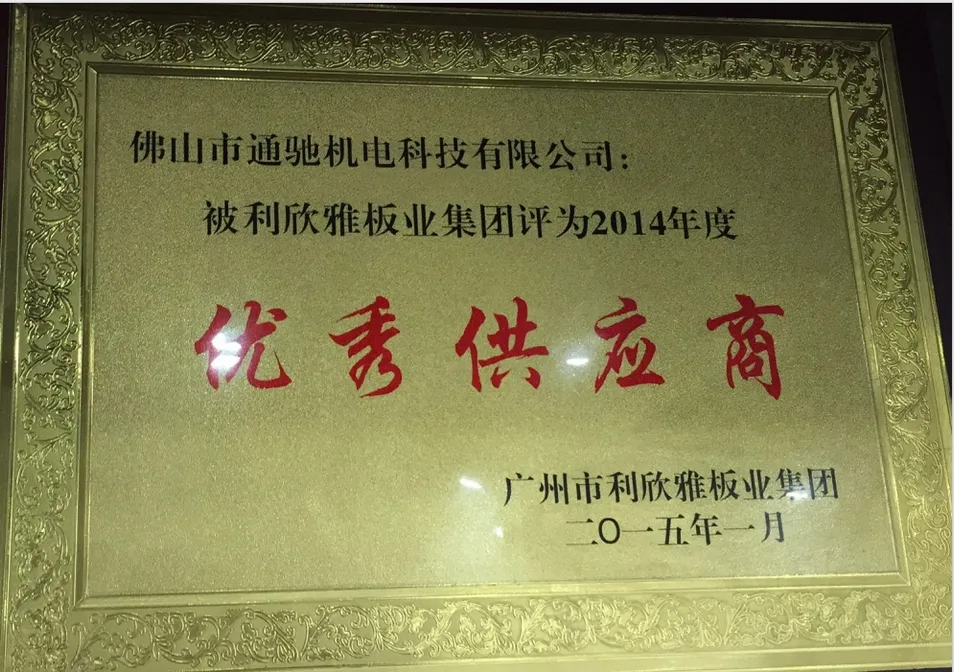 佛山市通驰机电科技有限公司：
被利欣雅板业集团评为2014年度
优秀供应商
广州市利欣雅板业集团
二〇一五年一月